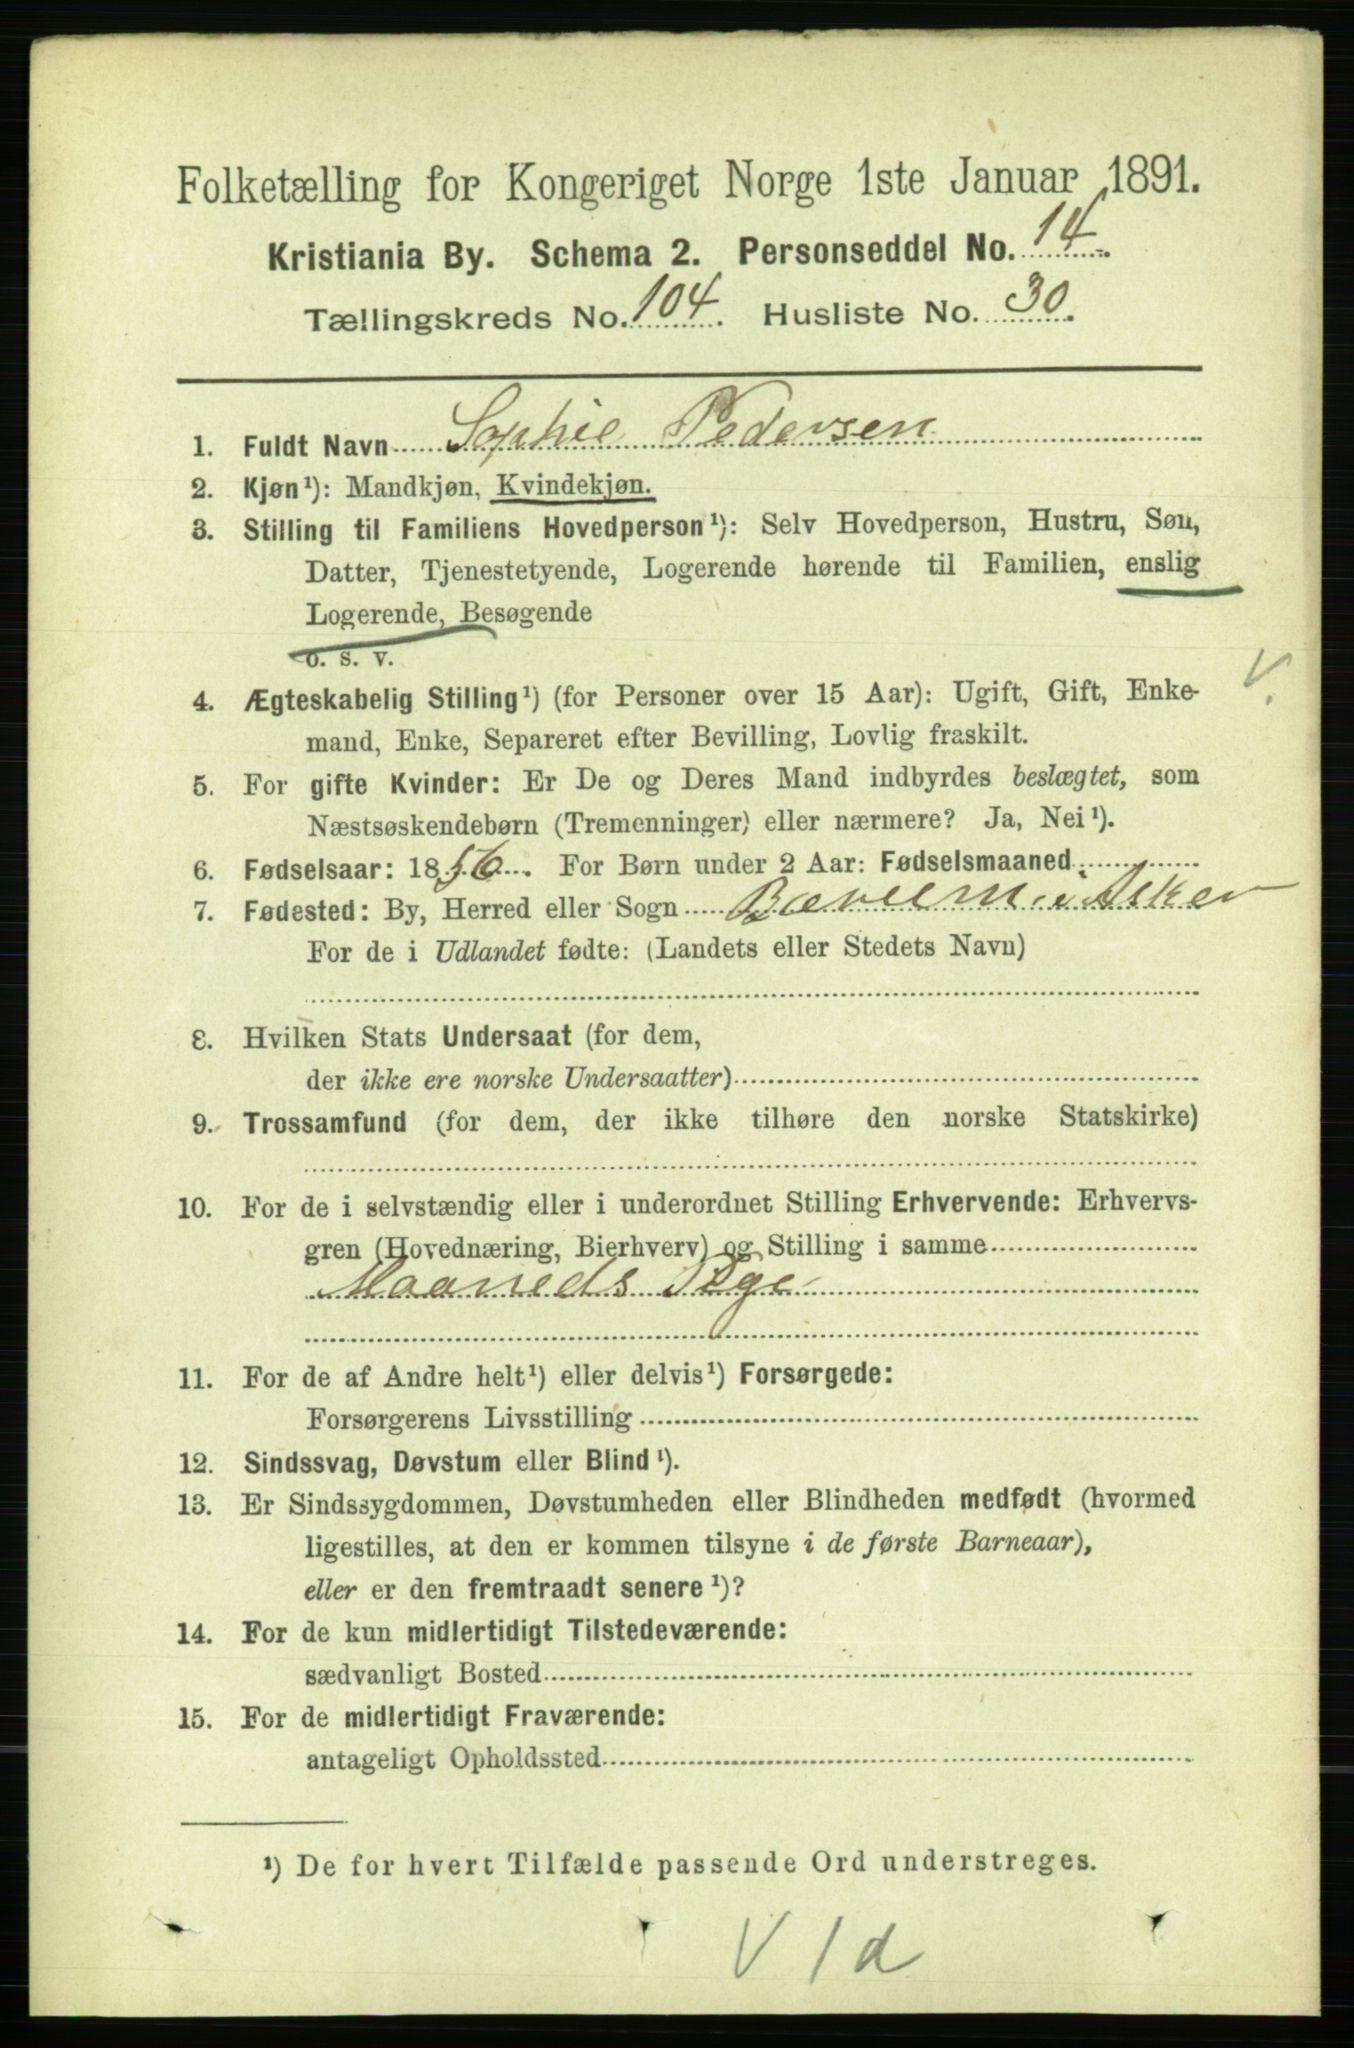 Folketælling for Kongeriget Norge 1ste Januar 1891.
Kristiania By. Schema 2. Personseddel No. 14.
Tællingskreds No. 104. Husliste No. 30.
1. Fuldt Navn Sophie Pedersen
2. Kjøn¹): Mandkjøn, Kvindekjøn.
3. Stilling til Familiens Hovedperson¹): Selv Hovedperson, Hustru, Søn,
Datter, Tjenestetyende, Logerende hørende til Familien, enslig
Logerende, Besøgende
o. s. v.
4. Ægteskabelig Stilling¹) (for Personer over 15 Aar): Ugift, Gift, Enke-
mand, Enke, Separeret efter Bevilling, Lovlig fraskilt.
V.
5. For gifte Kvinder: Er De og Deres Mand indbyrdes beslægtet, som
Næstsøskendebørn (Tremenninger) eller nærmere? Ja, Nei¹).
6. Fødselsaar: 1856. For Børn under 2 Aar: Fødselsmaaned
7. Fødested: By, Herred eller Sogn Bærum i Asker
For de i Udlandet fødte: (Landets eller Stedets Navn)
8. Hvilken Stats Undersaat (for dem,
der ikke ere norske Undersaatter)
9. Trossamfund (for dem, der ikke tilhøre den norske Statskirke)
10. For de i selvstændig eller i underordnet Stilling Erhvervende: Erhvervs-
gren (Hovednæring, Bierhverv) og Stilling i samme
Maaneds Pige
11. For de af Andre helt¹) eller delvis¹) Forsørgede:
Forsørgerens Livsstilling
12. Sindssvag, Døvstum eller Blind¹).
13. Er Sindssygdommen, Døvstumheden eller Blindheden medfødt (hvormed
ligestilles, at den er kommen tilsyne i de første Barneaar),
eller er den fremtraadt senere¹)?
14. For de kun midlertidigt Tilstedeværende:
sædvanligt Bosted
15. For de midlertidigt Fraværende:
antageligt Opholdssted
¹) De for hvert Tilfælde passende Ord understreges.
V 1 d